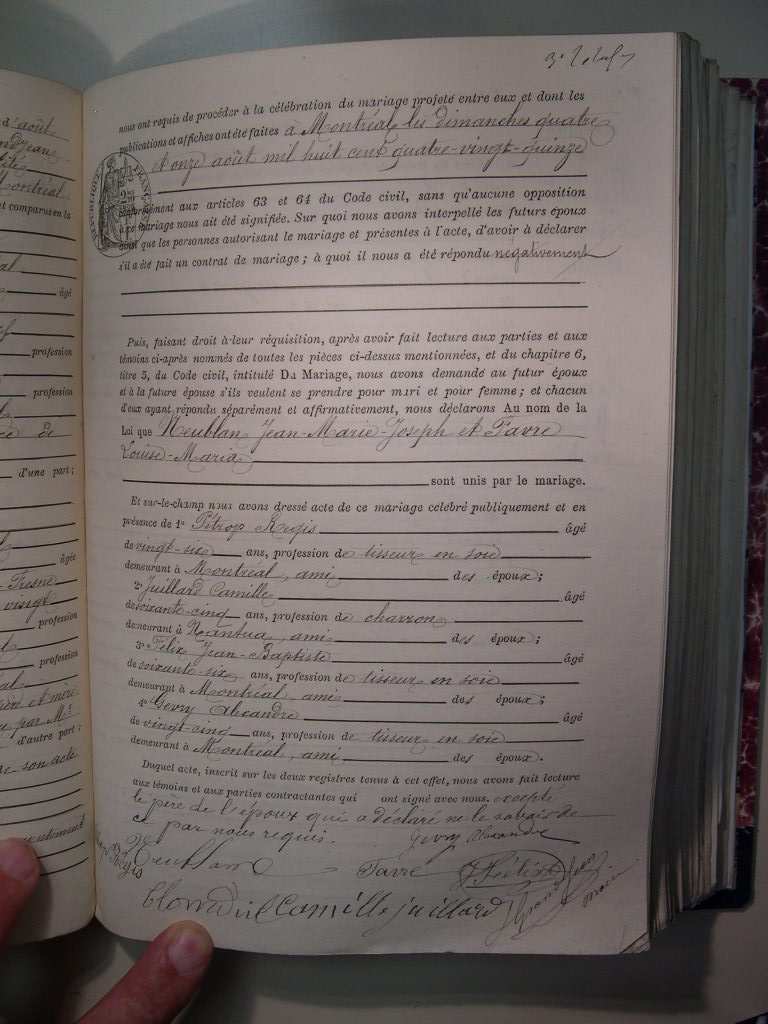 d'août
Montréal
t comparus en la
âgé
profession
profession
d'une part;
âgée
Fresne
vingt
profession
profession
père et mère
par Mr
d'autre part:
son acte
nous ont requis de procéder à la célébration du mariage projeté entre eux et dont les
publications et affiches ont été faites à Montréal les dimanches quatre
et onze août mil huit cent quatre-vingt-quinze
RÉPUBLIQUE FRANÇAISE
conformément aux articles 63 et 64 du Code civil, sans qu'aucune opposition
à ce mariage nous ait été signifiée. Sur quoi nous avons interpellé les futurs époux
ainsi que les personnes autorisant le mariage et présentes à l'acte, d'avoir à déclarer
s'il a été fait un contrat de mariage; à quoi il nous a été répondu négativement
Puis, faisant droit à leur réquisition, après avoir fait lecture aux parties et aux
témoins ci-après nommés de toutes les pièces ci-dessus mentionnées, et du chapitre 6,
titre 5, du Code civil, intitulé Du Mariage, nous avons demandé au futur époux
et à la future épouse s'ils veulent se prendre pour mari et pour femme; et chacun
d'eux ayant répondu séparément et affirmativement, nous déclarons Au nom de la
Loi que Neublan Jean-Marie-Joseph et Favre
Louise-Maria
sont unis par le mariage.
Et sur-le-champ nous avons dressé acte de ce mariage célébré publiquement et en
présence de 1° Pétrop Régis âgé
de vingt-six ans, profession de tisseur en soie
demeurant à Montréal, ami des époux;
2° Juillard Camille âgé
de soixante-cinq ans, profession de charron
demeurant à Nantua, ami des époux;
3° Félix Jean-Baptiste âgé
de soixante-six ans, profession de tisseur en soie
demeurant à Montréal, ami des époux;
4° Gevry Alexandre âgé
de vingt-cinq ans, profession de tisseur en soie
demeurant à Montréal, ami des époux.
Duquel acte, inscrit sur les deux registres tenus à cet effet, nous avons fait lecture
aux témoins et aux parties contractantes qui ont signé avec nous. excepté
le père de l'époux qui a déclaré ne le savoir de
ce par nous requis. Gevry Alexandre
Régis Neublan Favre Félix
Camille juillard